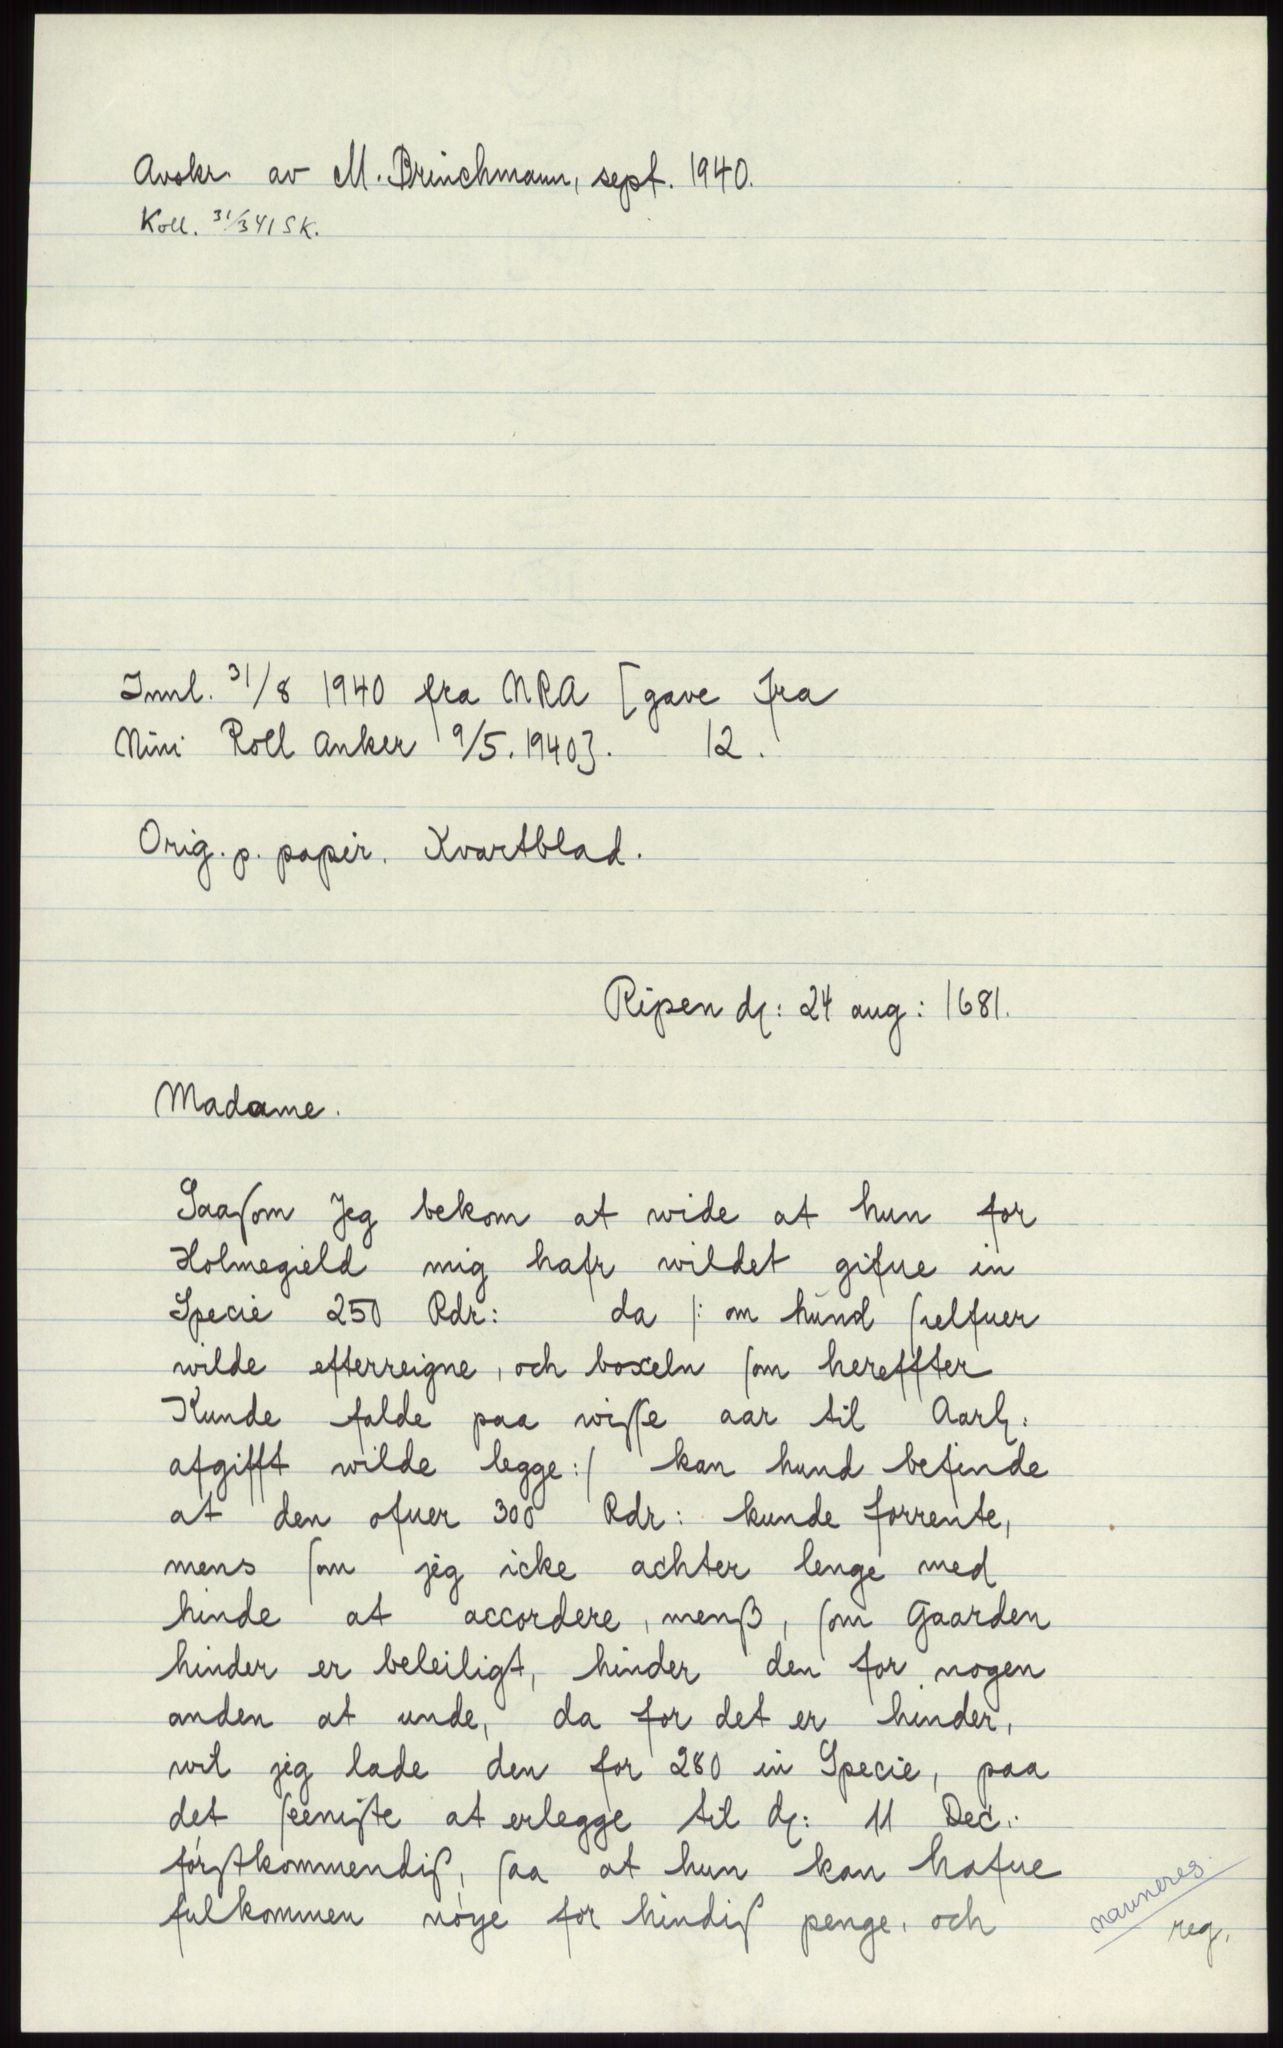 Avskr. av M. Brinchmann, sept. 1940.
Koll. 31/3 41 SK.
Innl. 31/8 1940 fra NRA [gave fra
Nini Roll Anker 9/5. 1940]. 12.
Orig. p. papir. Kvartblad.
Ripen dȝ: 24 aug: 1681.
Madame.
Saaſom Jeg bekom at wide at hun for
Holmegield mig hafr wildet gifue in
Specie 250 Rdr: da /: om hŭnd ſielfuer
wilde efterreigne, och boxeln ſom hereffter
Kunde falde paa wiſſe aar til Aarlȝ:
afgifft wilde legge:/ kan hund befinde
at den ofuer 300 Rdr: kunde forrente,
mens ſom jeg icke achter lenge med
hinde at accordere, menß, ſom Gaarden
hinder er beleiligt, hinder den for nogen
anden at unde, da for det er hinder,
wil jeg lade den for 280 in Specie, paa
det ſeeniſte at erlegge til dȝ: 11 Dec:
förſtkommendiß, ſaa at hun kan hafue
fulkommen nöye for hindiß penge, och
navneres.
reg.